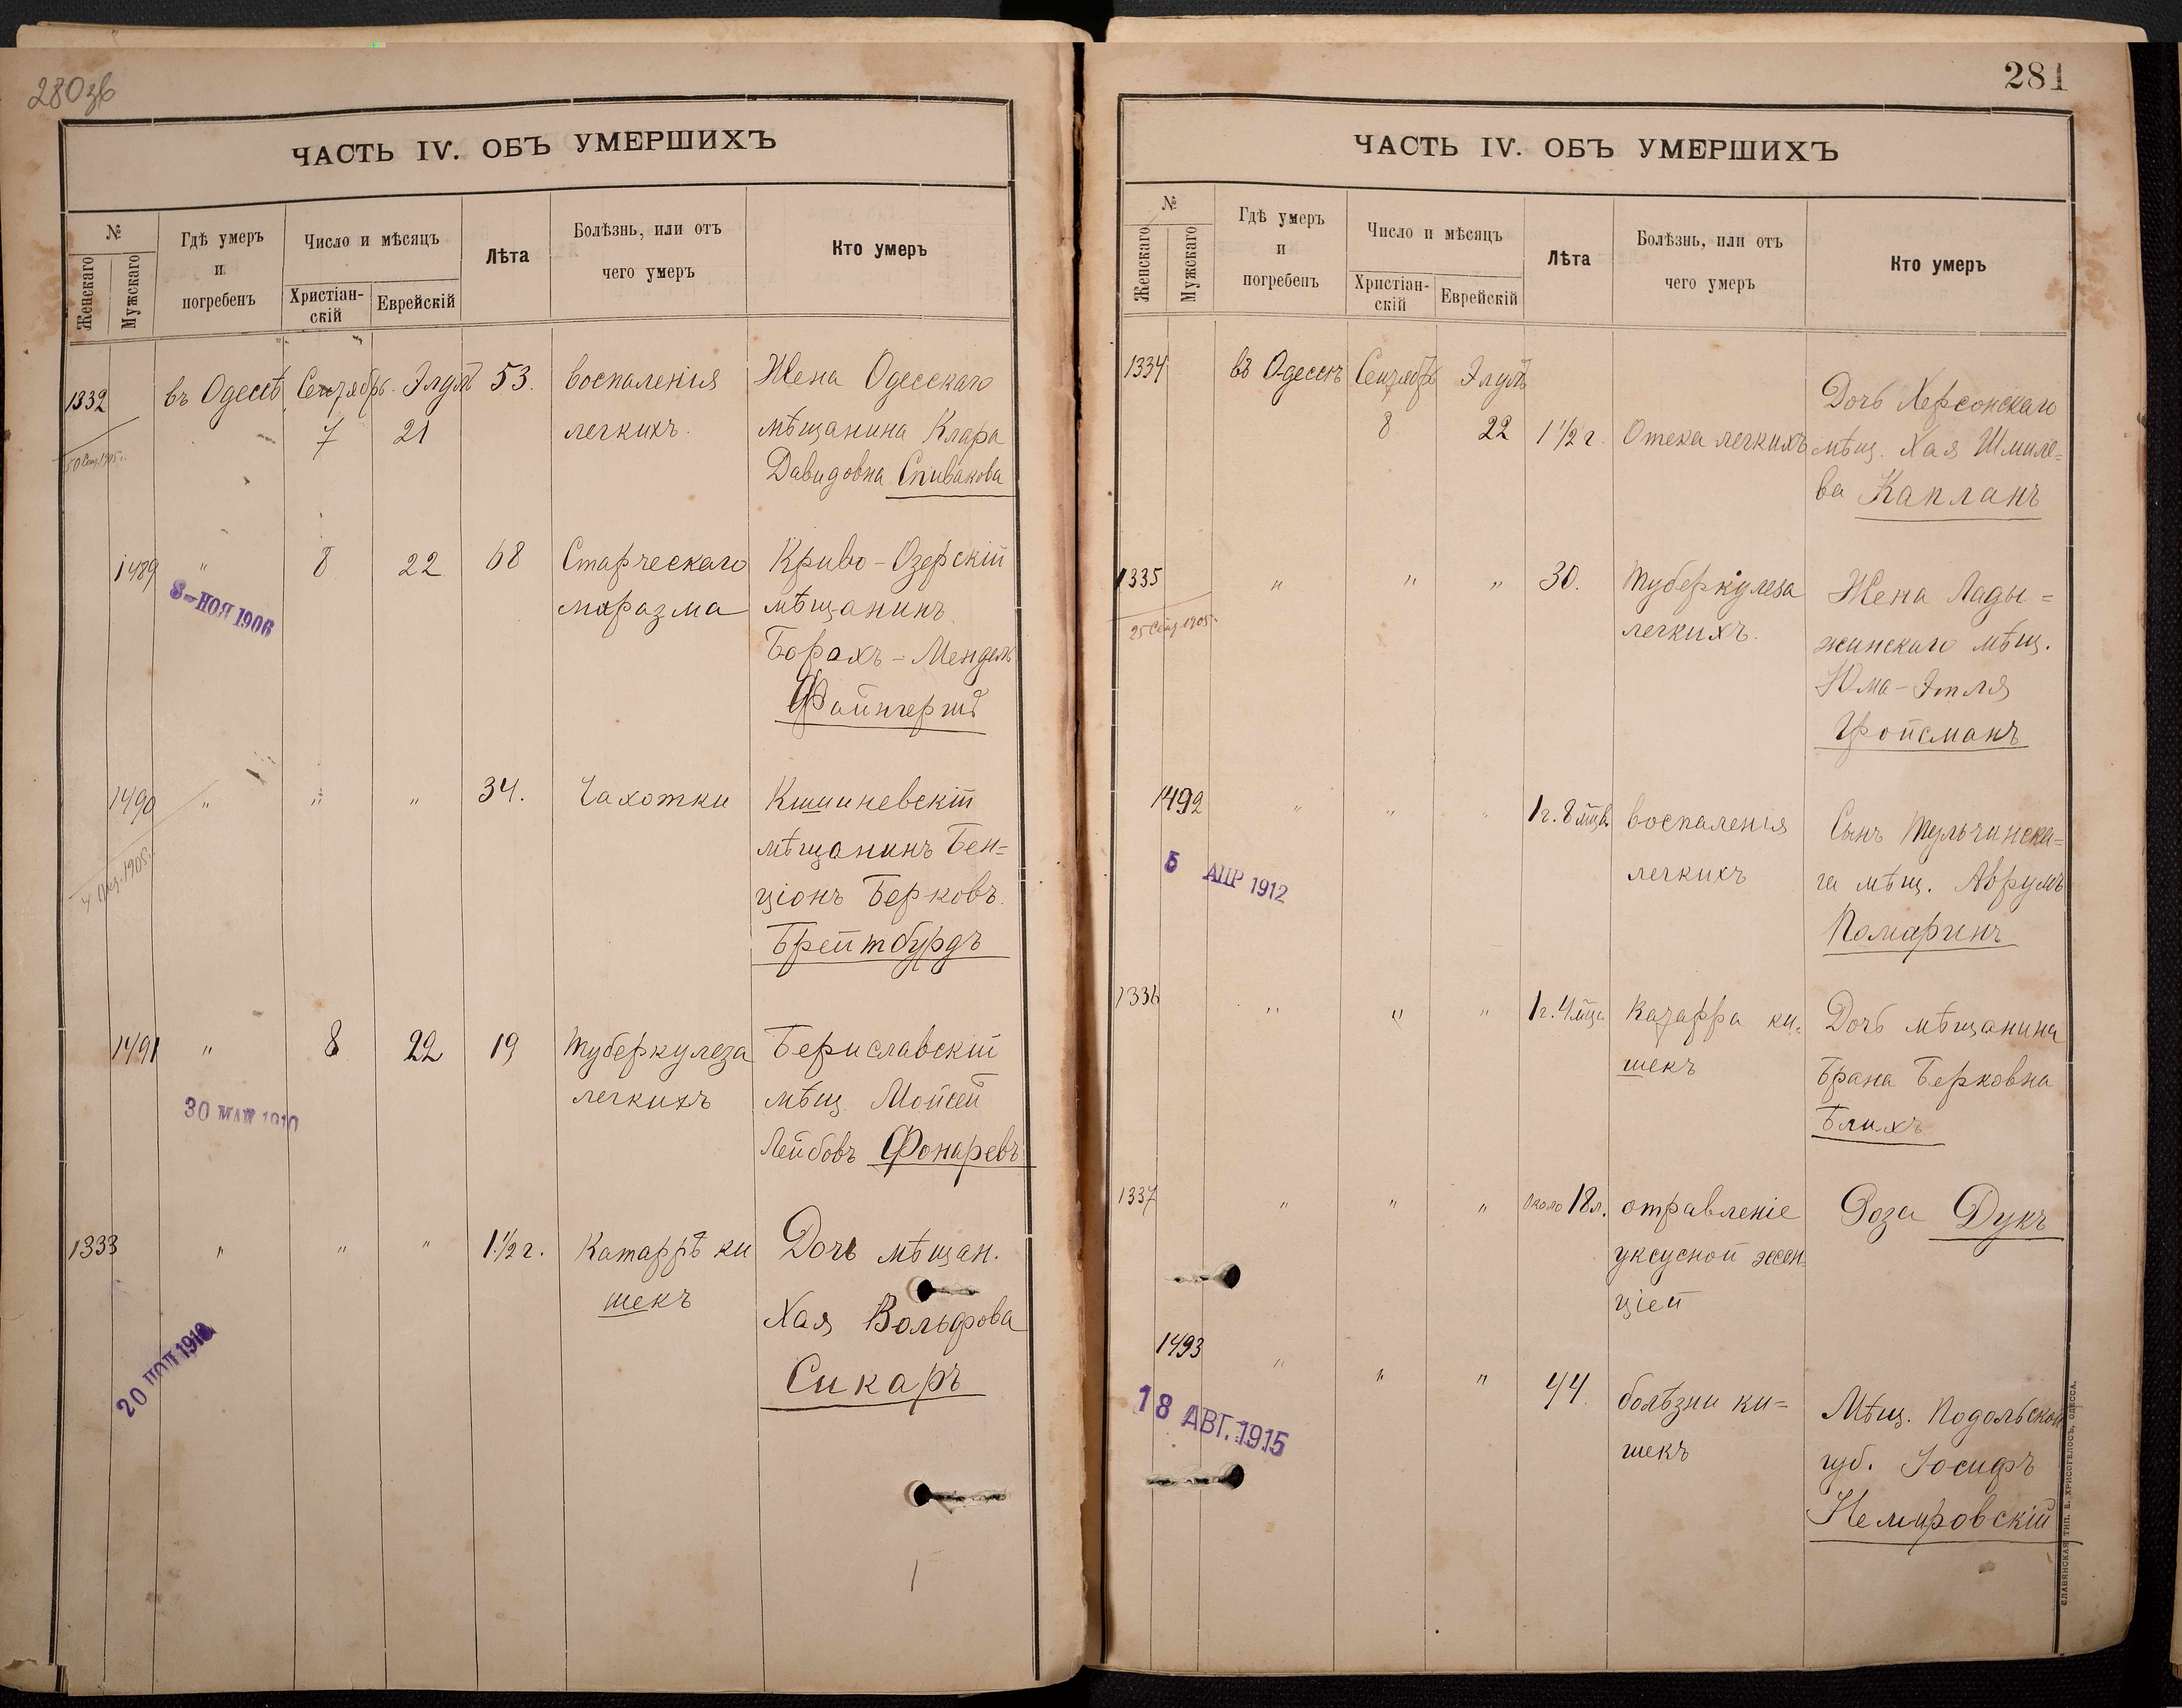 280 зв
ЧАСТЬ IV. ОБЪ УМЕРШИХЪ
№
Женскаго
Мужскаго
Гдѣ умеръ
и
погребенъ
Число и мѣсяцъ
Христіан-
скій
Еврейскій
Лѣта
Болѣзнь, или отъ
чего умеръ
Кто умеръ
1332 въ Одессѣ Сентябрь Элулъ 53. воспаленія Жена Одесскаго
7 21 легкихъ. мѣщанина Клара
Давидовна Спивакова
1489 " 8 22 68 Старческаго Криво-Озерскій
8-НОЯ 1906 маразма мѣщанинъ
Борахъ-Мендель
1490 " " " 34. Чахотки Кишиневскій
мѣщанинъ Бен=
ціонъ Берковъ.
Брейтбурдъ
1491 " 8 22 19 Туберкулеза Бериславскій
30 МАЯ 1910 легкихъ мѣщ. Мойсей
Лейбовъ Фонаревъ
1333 " " " 1 1/2 г. Катаррѣ ки Дочь мѣщан.
шекъ Хая Вольфова
Сикаръ
281
ЧАСТЬ IV. ОБЪ УМЕРШИХЪ
№
Женскаго
Мужскаго
Гдѣ умеръ
и
погребенъ
Число и мѣсяцъ
Христіан-
скій
Еврейскій
Лѣта
Болѣзнь, или отъ
чего умеръ
Кто умеръ
1334 въ Одессѣ Сентябрь Элулъ Дочь Херсонскаго
8 22 1 1/2 г. Отека легкихъ мѣщ. Хая Шмиле=
ва Капланъ
1335 " " " 30. Туберкулеза Жена Лады=
25 Сент. 1905 г. легкихъ. жинскаго мѣщ.
Юма-Этля
Фройсманъ
1492 " " " 1 г. 8 мцв. воспаленія Сынъ Тульчинска=
5 АПР 1912 легкихъ го мѣщ. Аврумъ
Помаринъ
1336 " " " 1 г. 4 мца. Катарра ки= Дочь мѣщанина
шекъ Брана Берковна
Блихъ
1337 " " " около 18 л. отравленіе Роза Дукъ
уксусной эссен=
ціей
1493 " " " 44. болѣзни ки= Мѣщ. Подольской
18 АВГ. 1915 шекъ губ. Іосифъ
Немировскій
СЛАВЯНСКАЯ ТИП. Е. ХРИСОГЕЛОСЪ, ОДЕССА.